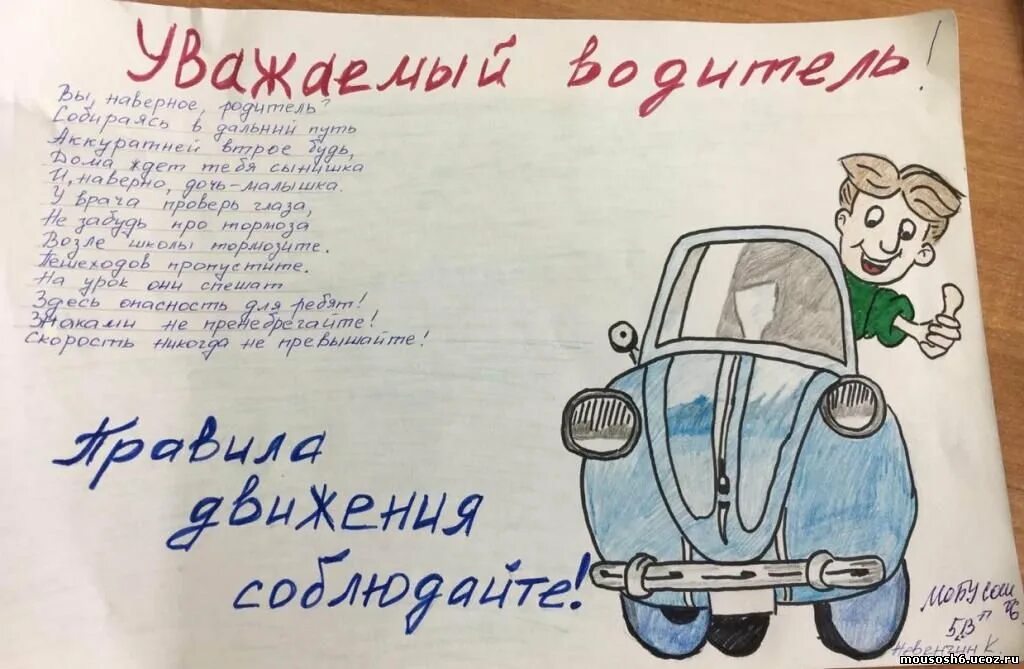 Уважаемый водитель!
Вы, наверное, родитель?
Собираясь в дальний путь
Аккуратней втрое будь,
Дома ждет тебя сынишка
И, наверно, дочь-малышка.
У врача проверь глаза,
Не забудь про тормоза
Возле школы тормозите.
Пешеходов пропустите.
На урок они спешат
Здесь опасность для ребят!
Знаками не пренебрегайте!
Скорость никогда не превышайте!
Правила
движения
соблюдайте!
МОБУ сош
5"В"
К.
mousosh6.ucoz.ru